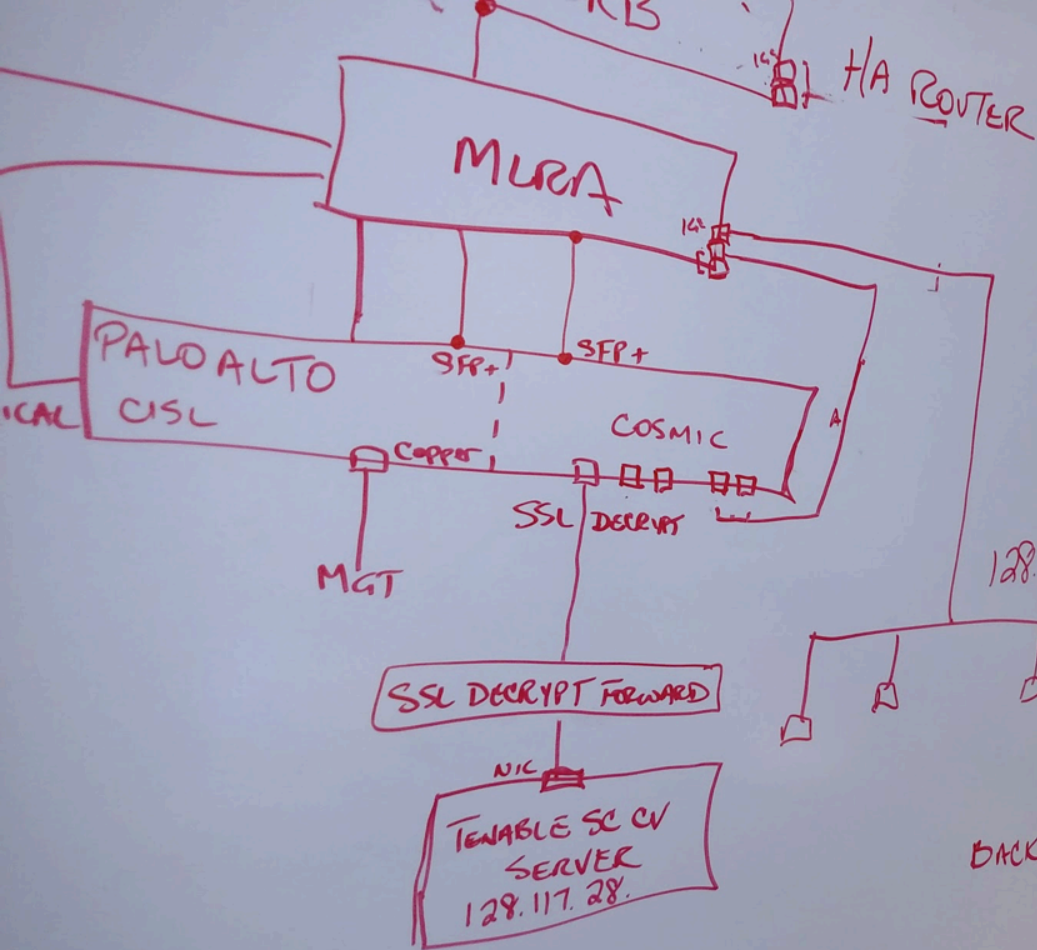 H/A ROUTER
MLRA
1G
PALO ALTO
CISL
SFP+
SFP+
COSMIC
A
ICAL
Copper
SSL DECRYPT
MGT
128.
SSL DECRYPT FORWARD
NIC
TENABLE SC CV
SERVER
128.117.28.
BACK